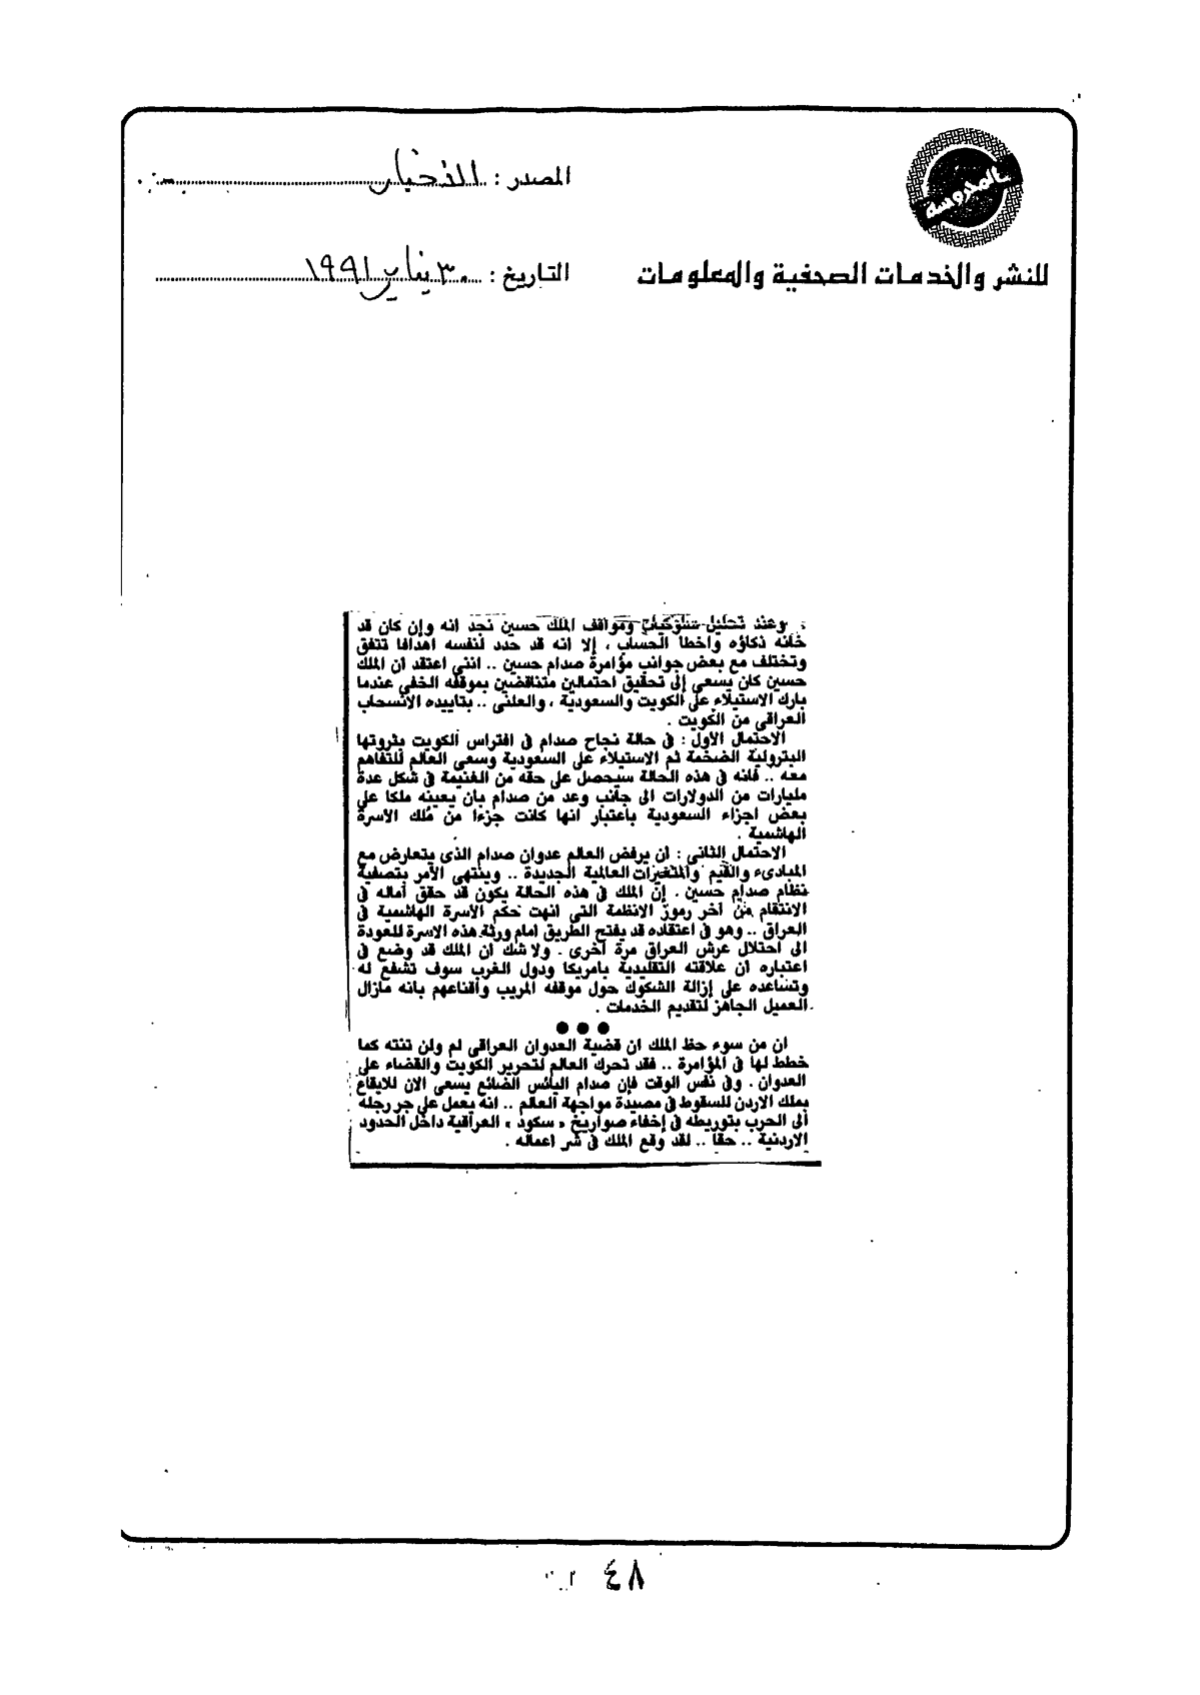 المحروسة
للنشر والخدمات الصحفية والمعلومات
المصدر : الأخبار
التاريخ : ٣٠ يناير ١٩٩١
وعند تحليل سلوكيات ومواقف الملك حسين نجد انه وإن كان قد
خانه ذكاؤه واخطأ الحساب ، إلا انه قد حدد لنفسه اهدافا تتفق
وتختلف مع بعض جوانب مؤامرة صدام حسين .. اننى اعتقد ان الملك
حسين كان يسعى إلى تحقيق احتمالين متناقضين بموقفه الخفى عندما
بارك الاستيلاء على الكويت والسعودية ، والعلنى .. بتاييده الانسحاب
العراقى من الكويت .
الاحتمال الاول : فى حالة نجاح صدام فى افتراس الكويت بثروتها
البترولية الضخمة ثم الاستيلاء على السعودية وسعى العالم للتفاهم
معه .. فانه فى هذه الحالة سيحصل على حقه من الغنيمة فى شكل عدة
مليارات من الدولارات الى جانب وعد من صدام بان يعينه ملكا على
بعض اجزاء السعودية باعتبار انها كانت جزءا من مُلك الاسرة
الهاشمية .
الاحتمال الثانى : أن يرفض العالم عدوان صدام الذى يتعارض مع
المبادىء والقيم والمتغيرات العالمية الجديدة .. وينتهى الأمر بتصفية
نظام صدام حسين . إن الملك فى هذه الحالة يكون قد حقق أماله فى
الانتقام من آخر رموز الانظمة التى انهت حكم الأسرة الهاشمية فى
العراق .. وهو فى اعتقاده قد يفتح الطريق امام ورثة هذه الاسرة للعودة
الى احتلال عرش العراق مرة أخرى . ولا شك ان الملك قد وضع فى
اعتباره ان علاقته التقليدية بامريكا ودول الغرب سوف تشفع له
وتساعده على إزالة الشكوك حول موقفه المريب واقناعهم بانه مازال
العميل الجاهز لتقديم الخدمات .
●●●
ان من سوء حظ الملك ان قضية العدوان العراقى لم ولن تنته كما
خطط لها فى المؤامرة .. فقد تحرك العالم لتحرير الكويت والقضاء على
العدوان . وفى نفس الوقت فإن صدام اليائس الضائع يسعى الان للايقاع
بملك الاردن للسقوط فى مصيدة مواجهة العالم .. انه يعمل على جر رجله
الى الحرب بتوريطه فى إخفاء صواريخ « سكود » العراقية داخل الحدود
الاردنية .. حقا .. لقد وقع الملك فى شر اعماله .
٤٨